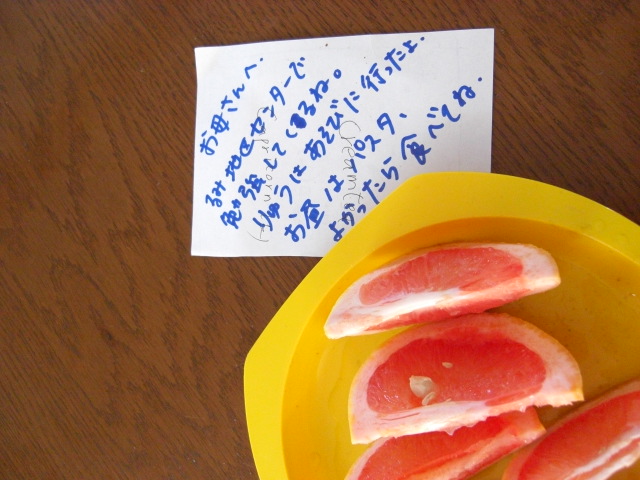 お母さんへ.
るみ 地区センターで
勉強してくるね。
りゅうはあそびに行ったよ.
お昼はパスタ、
よかったら食べてね.